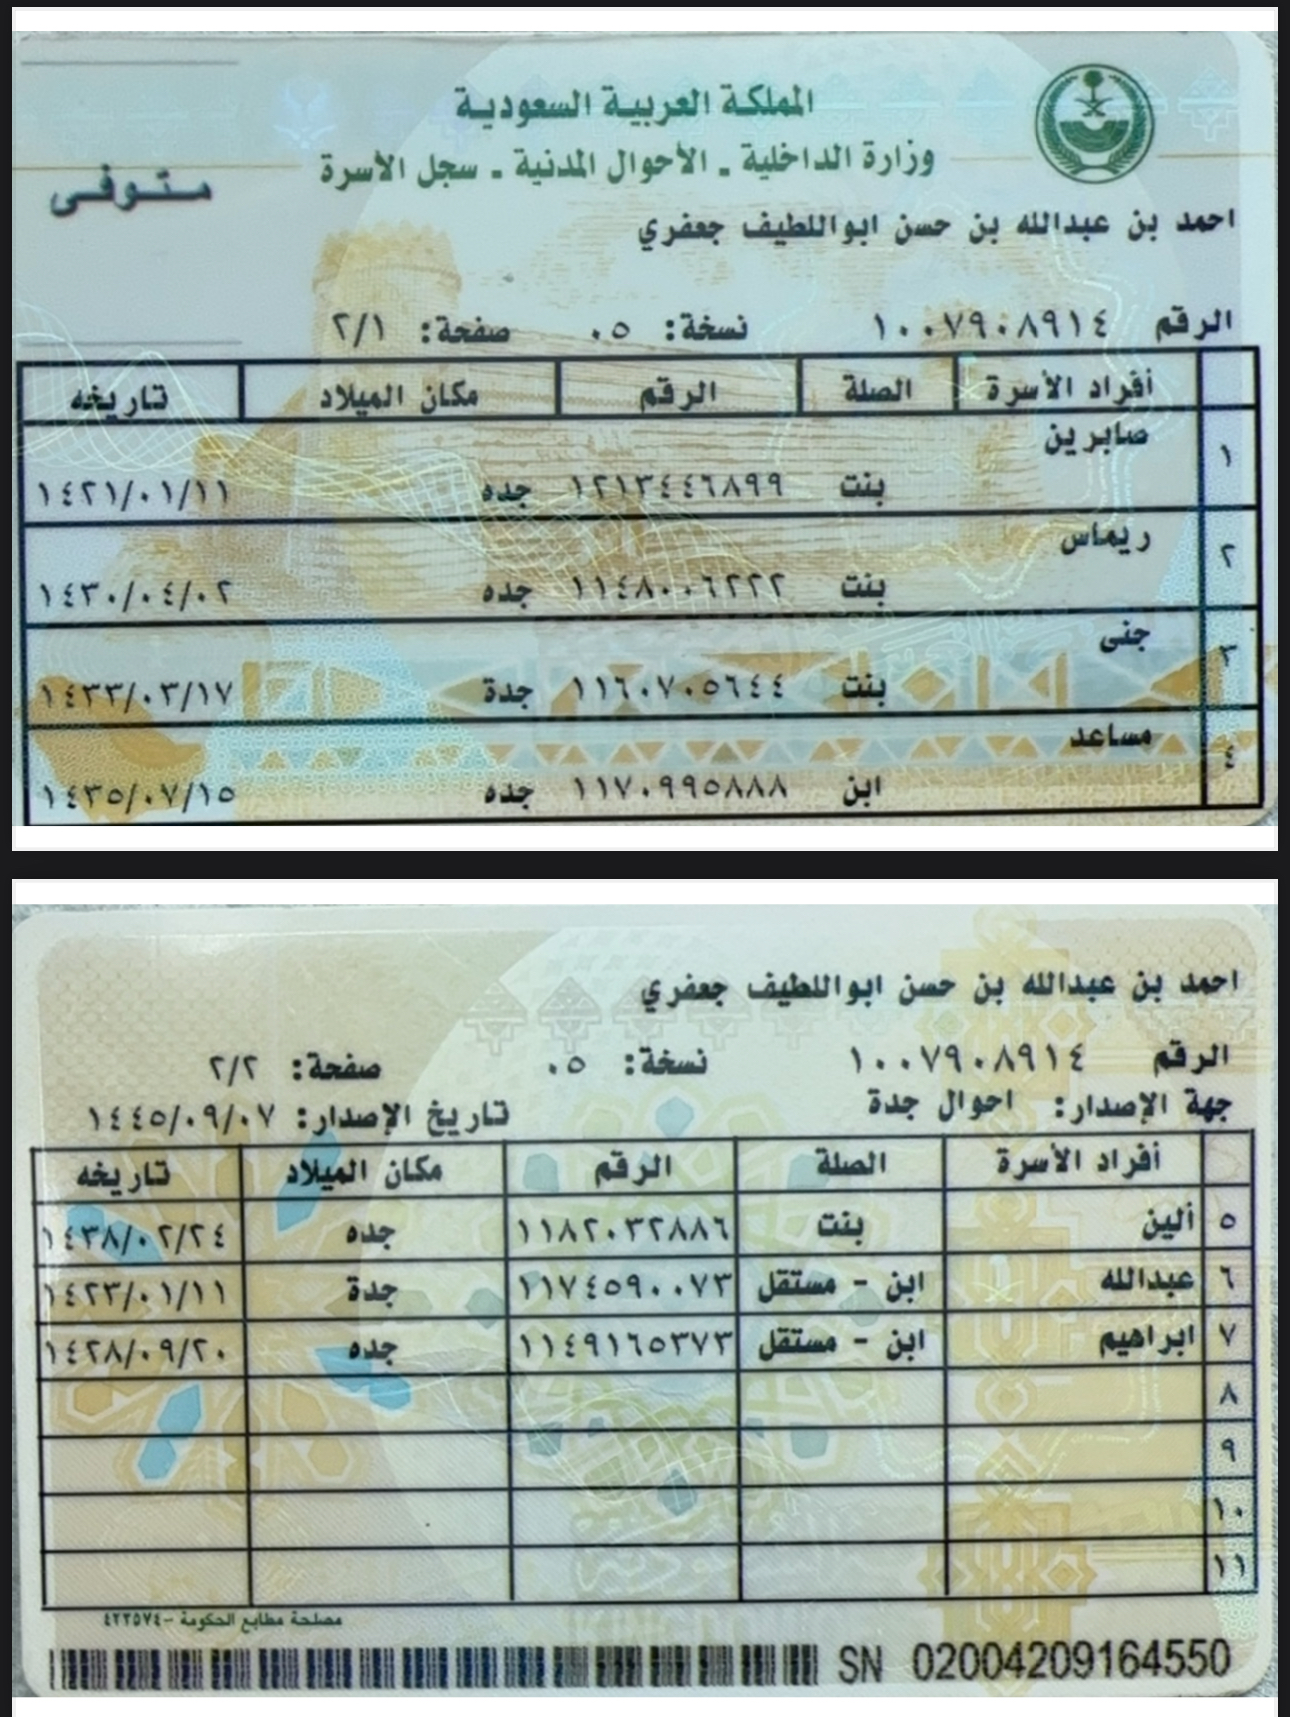 المملكة العربية السعودية
وزارة الداخلية ـ الأحوال المدنية ـ سجل الأسرة
متوفى
احمد بن عبدالله بن حسن ابواللطيف جعفري
الرقم ١٠٠٧٩٠٨٩١٤ نسخة: ٠٥ صفحة: ٢/١
أفراد الأسرة الصلة الرقم مكان الميلاد تاريخه
١ صابرين بنت ١٢١٣٤٤٦٨٩٩ جده ١٤٢١/٠١/١١
٢ ريماس بنت ١١٤٨٠٠٦٢٢٢ جده ١٤٣٠/٠٤/٠٢
٣ جنى بنت ١١٦٠٧٠٥٦٤٤ جدة ١٤٣٣/٠٣/١٧
٤ مساعد ابن ١١٧٠٩٩٥٨٨٨ جده ١٤٣٥/٠٧/١٥
احمد بن عبدالله بن حسن ابواللطيف جعفري
الرقم ١٠٠٧٩٠٨٩١٤ نسخة: ٠٥ صفحة: ٢/٢
جهة الإصدار: احوال جدة تاريخ الإصدار: ١٤٤٥/٠٩/٠٧
أفراد الأسرة الصلة الرقم مكان الميلاد تاريخه
٥ ألين بنت ١١٨٢٠٣٢٨٨٦ جده ١٤٣٨/٠٢/٢٤
٦ عبدالله ابن - مستقل ١١٧٤٥٩٠٠٧٣ جدة ١٤٢٣/٠١/١١
٧ ابراهيم ابن - مستقل ١١٤٩١٦٥٣٧٣ جده ١٤٢٨/٠٩/٢٠
٨
٩
١٠
١١
مصلحة مطابع الحكومة -٤٢٣٥٧٤
SN 02004209164550